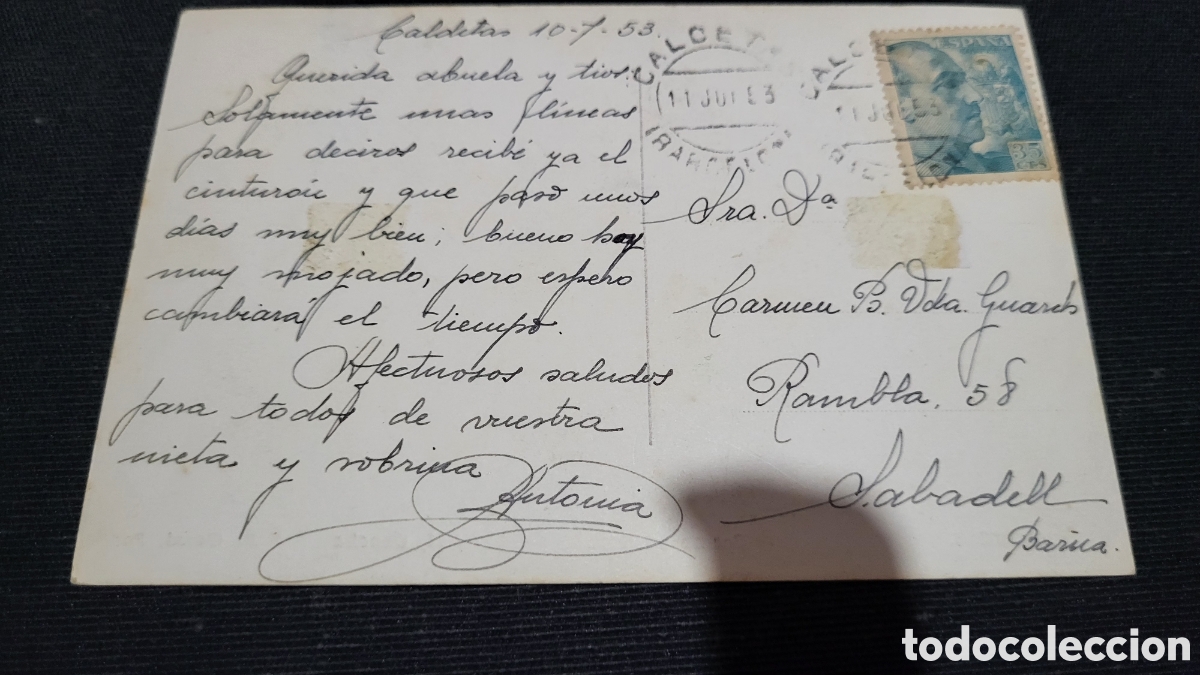 Caldetas 10-7-53.
Querida abuela y tios:
Solamente unas líneas
para deciros recibé ya el
cinturón y que paso unos
días muy bien; bueno hoy
muy mojado, pero espero
cambiará el tiempo.
Afectuosos saludos
para todos de vuestra
nieta y sobrina
Antonia
CALDETAS
11 JUL 53
(BARCELONA)
CALDE
11 JUL 53
ESPAÑA
Sra. Dª
Carmen B. Vda. Guarch
Rambla, 58
Sabadell
Barna.
todocoleccion